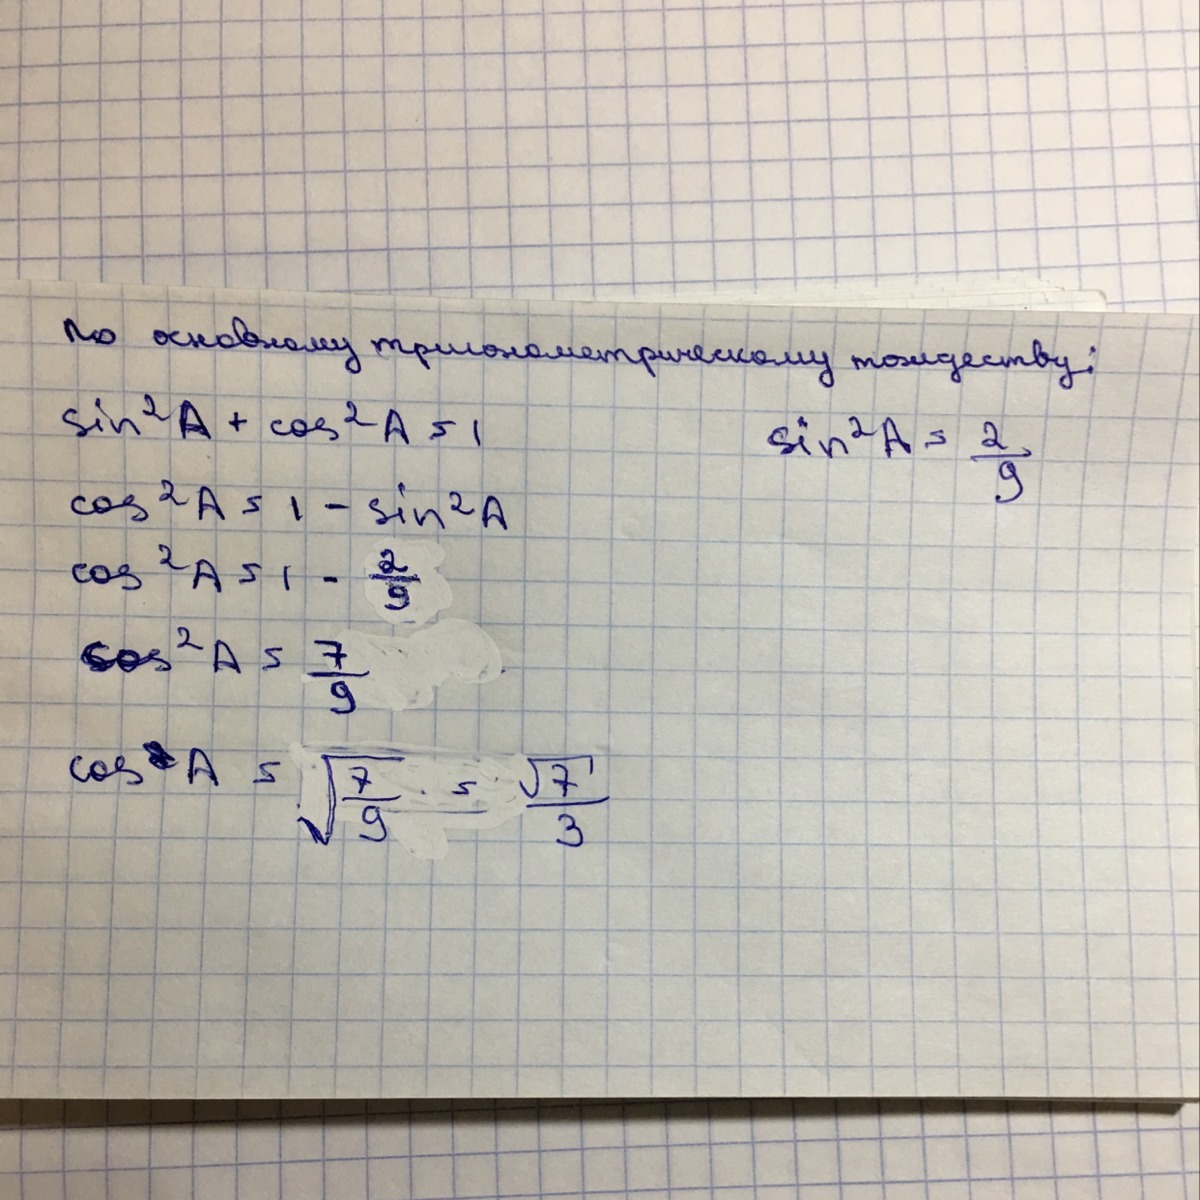 По основному тригонометрическому тождеству:
sin²A + cos²A = 1
sin²A = 2/9
cos²A = 1 - sin²A
cos²A = 1 - 2/9
cos²A = 7/9
cos A = √(7/9) = √7/3